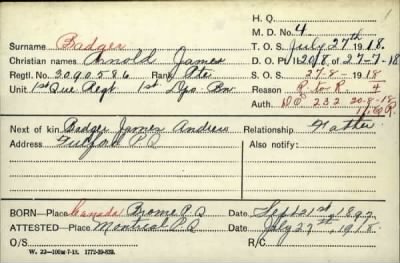 H. Q.
1
M. D. No. 4
Surname Badger
T. O. S. July 27th 1918.
Christian names Arnold James
D. O. Pt II 208 of 27-7-18
Regtl. No. 3090586 Rank Pte
S. O. S. 27-8-1918
Unit 1st Que Regt 1st Dpo. Bn.
Reason R to R
Auth. DO 232 20-8-18
Next of kin Badger James Andrew Relationship Father
Address Fulford P.Q Also notify:
BORN—Place Canada Brome P.Q Date Sept 21st 1897
ATTESTED—Place Montreal P.Q Date July 27th, 1918.
O/S R/C